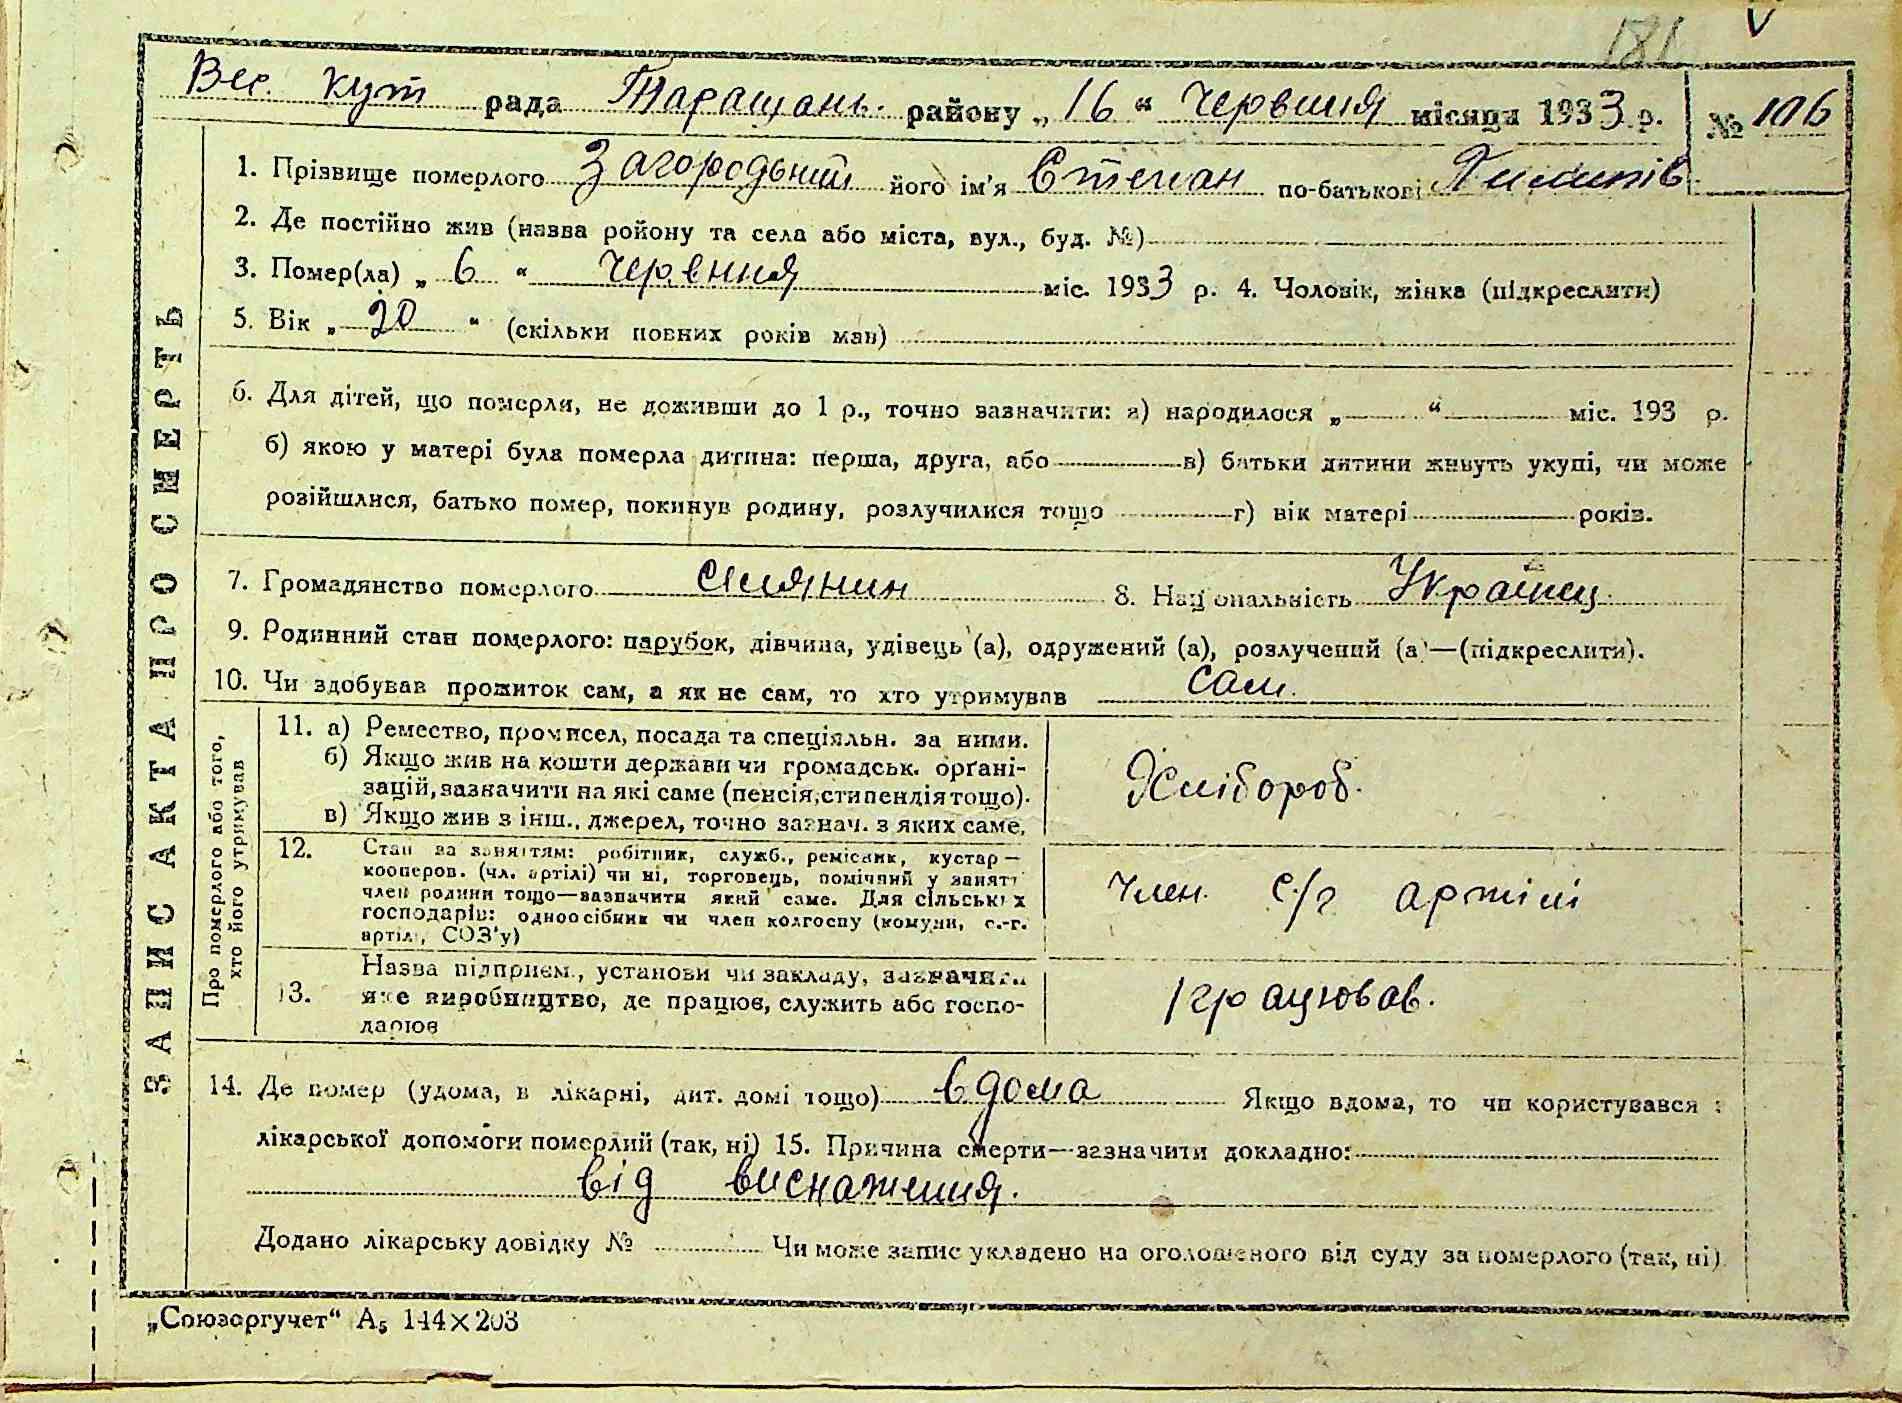 181
Вес. кут рада Таращань. району „16“ червння місяця 1933 р. № 106
ЗАПИС АКТА ПРО СМЕРТЬ
1. Прізвище померлого Загородьний його ім'я Степан по-батькові
2. Де постійно жив (назва ройону та села або міста, вул., буд. №)
3. Помер(ла) „ 6 “ червння міс. 1933 р. 4. Чоловік, жінка (підкреслити)
5. Вік „ 20 “ (скільки повних років мав)
6. Для дітей, що померли, не доживши до 1 р., точно зазначити: а) народилося „ “ міс. 193 р.
б) якою у матері була померла дитина: перша, друга, або в) батьки дитини живуть укупі, чи може
розійшлися, батько помер, покинув родину, розлучилися тощо г) вік матері років.
7. Громадянство померлого 8. Національність Українец.
9. Родинний стан померлого: парубок, дівчина, удівець (а), одружений (а), розлучений (а)—(підкреслити).
10. Чи здобував прожиток сам, а як не сам, то хто утримував сам.
Про померлого або того, хто його утримував
11. а) Ремество, промисел, посада та спеціяльн. за ними.
б) Якщо жив на кошти держави чи громадськ. орґані-
зацій, зазначити на які саме (пенсія, стипендія тощо).
в) Якщо жив з інш., джерел, точно зазнач. з яких саме.
Хлібороб.
12. Стан за заняттям: робітник, служб., ремісник, кустар—
кооперов. (чл. артілі) чи ні, торговець, помічний у занятті
член родини тощо—зазначити який саме. Для сільських
господарів: одноосібник чи член колгоспу (комуни, с.-г.
артілі, СОЗ'у)
Член. с/г артілі
13. Назва підприєм., установи чи закладу, зазначити
яке виробництво, де працює, служить або госпо-
дарює
працював.
14. Де помер (удома, в лікарні, дит. домі тощо) вдома Якщо вдома, то чи користувався з
лікарської допомоги померлий (так, ні) 15. Причина смерти—зазначити докладно:
від виснаження.
Додано лікарську довідку № Чи може запис укладено на оголошеного від суду за померлого (так, ні)
„Союзоргучет“ А5 144×203